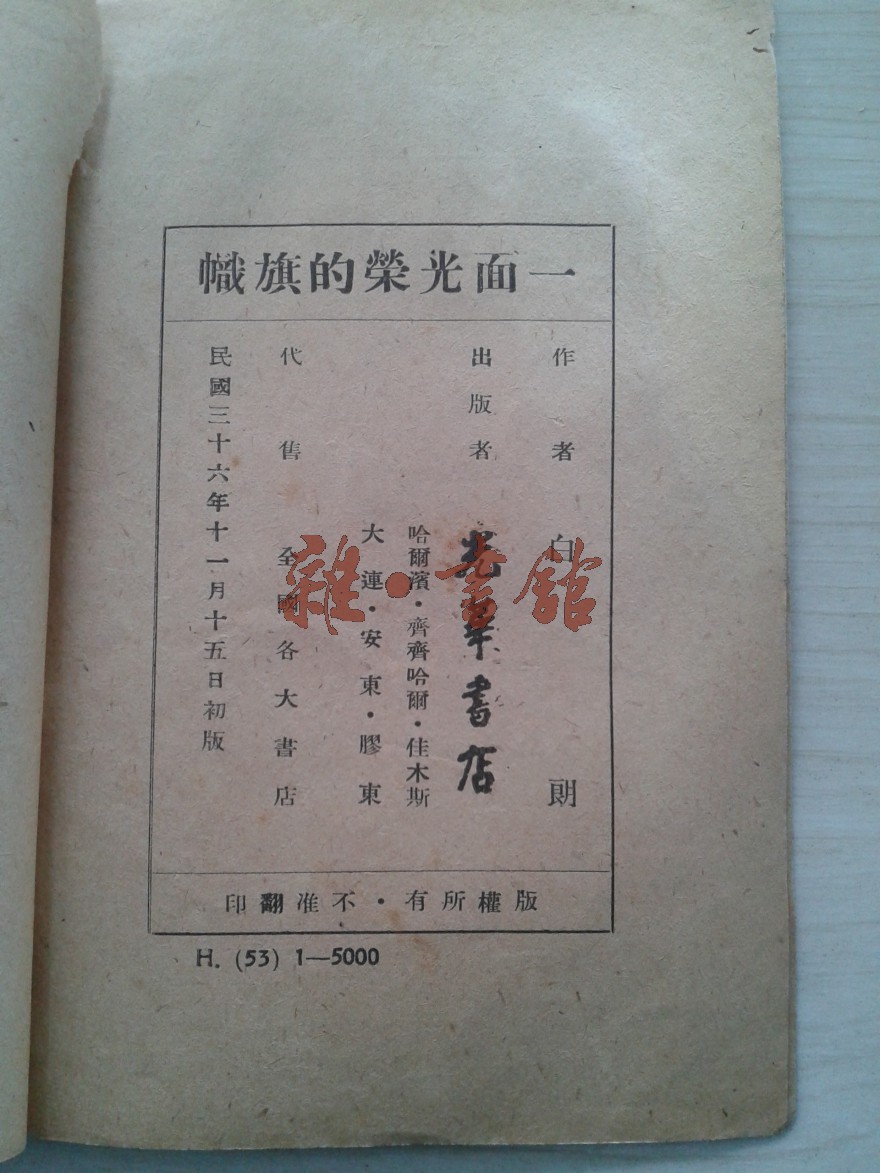 一面光榮的旗幟
作者 白朗
出版者 光華書店
哈爾濱·齊齊哈爾·佳木斯
大連·安東·膠東
代售 全國各大書店
民國三十六年十一月十五日初版
版權所有·不准翻印
H. (53) 1—5000
雜·書館